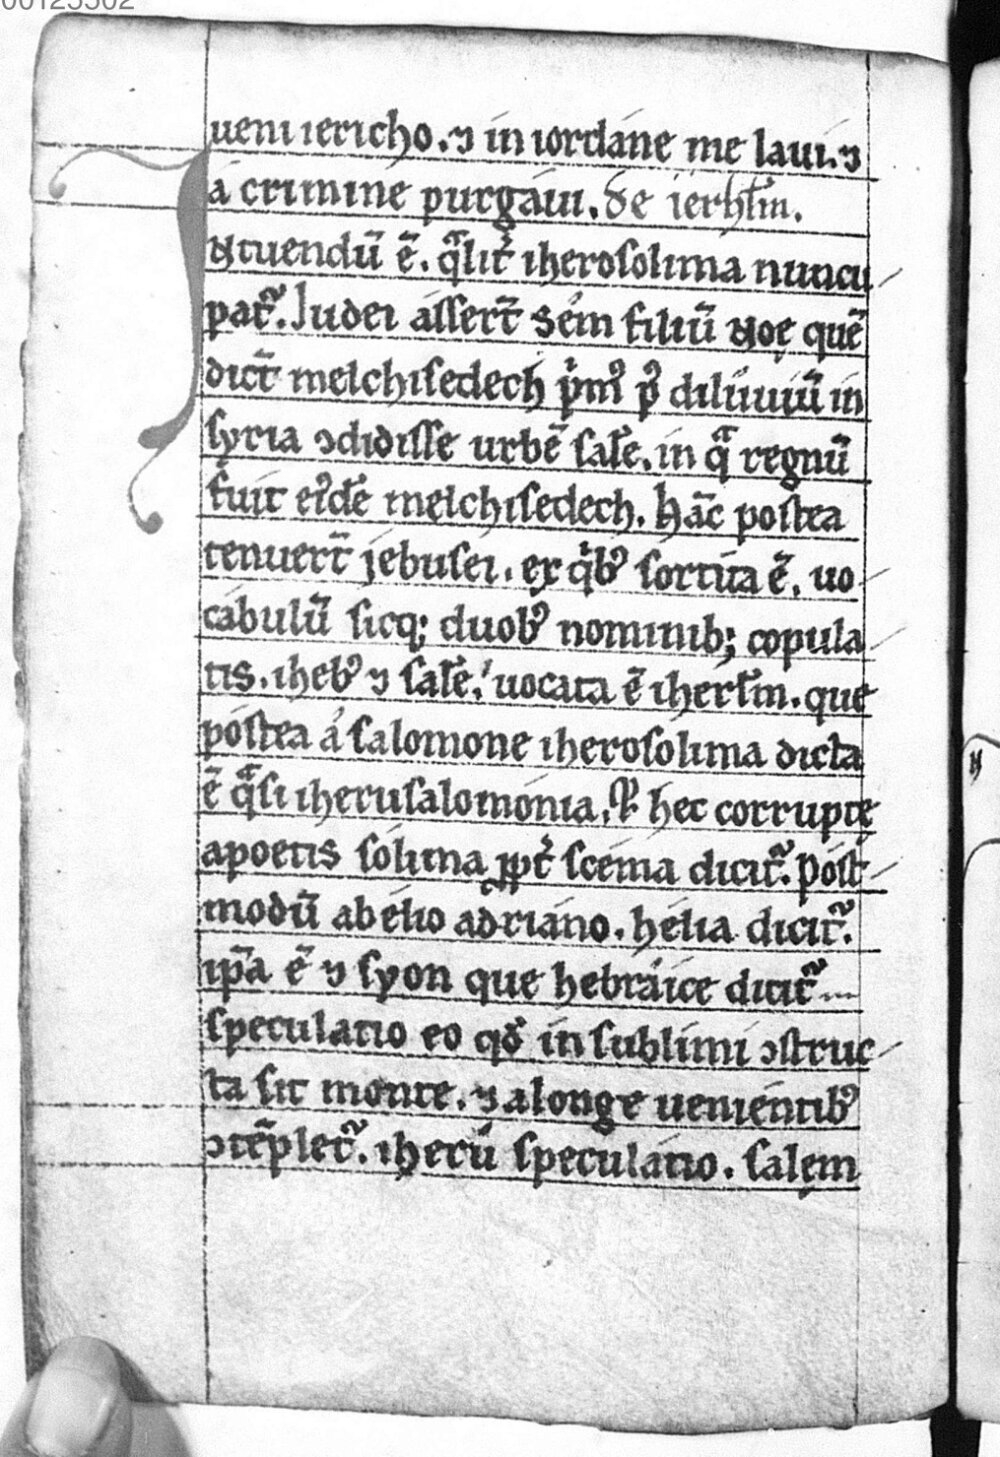 ueni iericho. ⁊ in iordane me laui. ⁊
a crimine purgaui. De ierl̄m.
Ntuendū ē. qͣlit̉ iherosolima nuncu
pat᷑. Iudei assert̄ Sem filiū Noę quē
dict̄ melchisedech p̉mꝰ pꝰ diluuiū in
syria ꝯdidisse urbē salē. in qͣ regnū
fuit eiꝰdē melchisedech. Hāc postea
tenuert̄ jebusei. ex qͥbꝰ sortita ē. uo
cabulū sicq; duobꝰ nominib; copula
tis. ihebꝰ ⁊ salē. uocata ē iherl̄m. que
postea a salomone iherosolima dicta
ē qͣsi iherusalomonia. hec corrupte
apoetis solima scema dicit᷑. Post
modū abelio adriano. helia dicit᷑.
ip̄a ē ⁊ syon que hebraice dicit᷑
speculatio eo qd̉ in sublimi ꝯstruc
ta sit monte. ⁊ alonge uenientibꝰ
ꝯtēplet᷑. iherū speculatio. salem